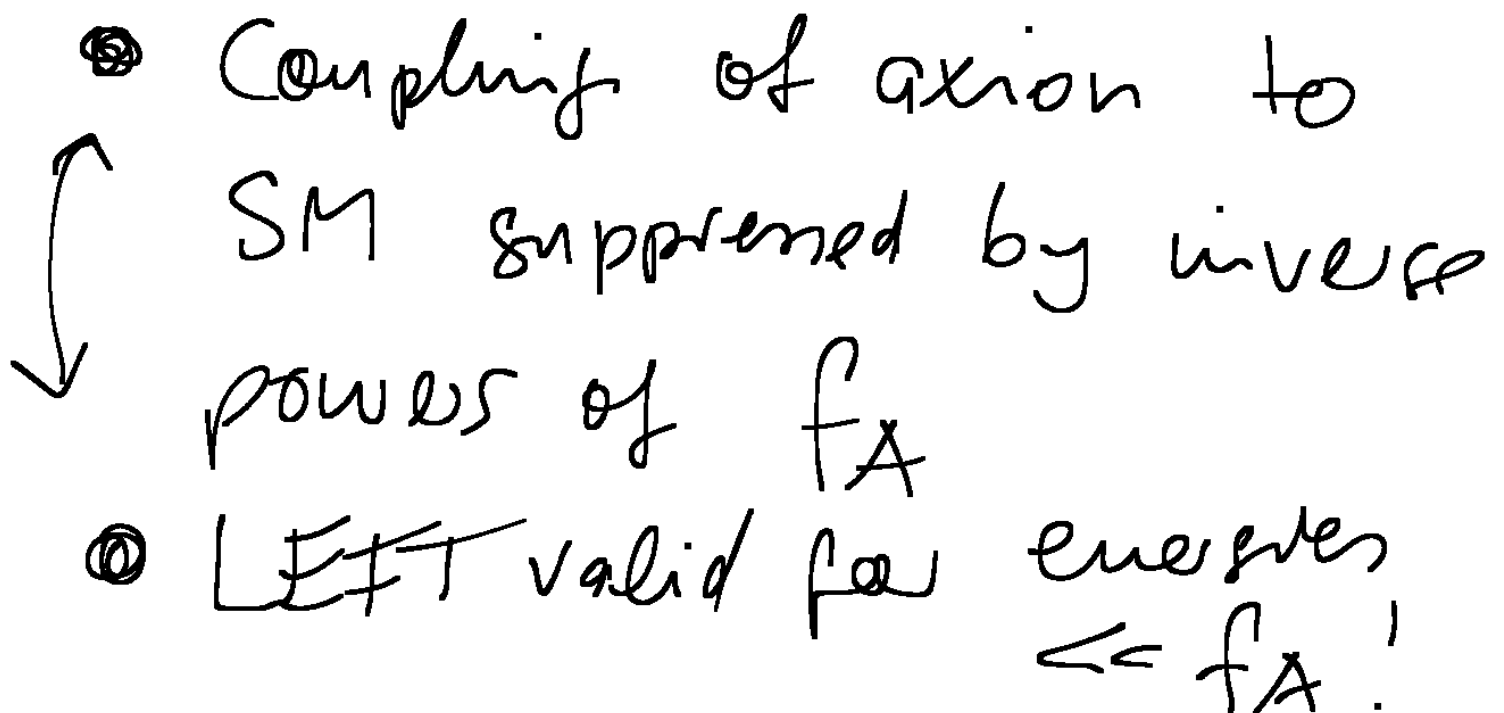 • Coupling of axion to
SM suppressed by inverse
powers of f_A
• LEFT valid for energies
<< f_A!